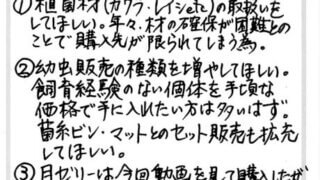 ①植菌材(カワラ・レイシetc)の取扱いを
してほしい。年々、材の確保が困難との
ことで購入先が限られてしまう為。
②幼虫販売の種類を増やしてほしい。
飼育経験のない個体を手頃な
価格で手に入れたい方は多いはず。
菌糸ビン・マットとのセット販売も拡充
してほしい。
③日ゼリーは今回動画を見て購入したが